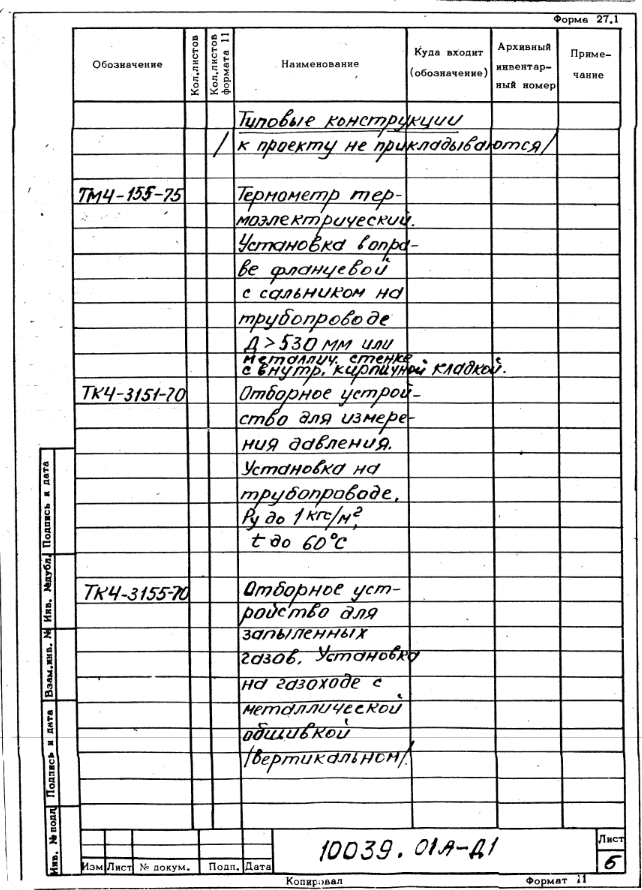 Форма 27.1
Обозначение
Кол.листов
Кол.листов формата 11
Наименование
Куда входит (обозначение)
Архивный инвентар- ный номер
Приме- чание
Типовые конструкции
/к проекту не прикладываются/
ТМ4-155-75
Термометр тер-
моэлектрический.
Установка в опра-
ве фланцевой
с сальником на
трубопроводе
Д>530 мм или
металлич. стенке
с внутр. кирпичной кладкой.
ТК4-3151-70
Отборное устрой-
ство для измере-
ния давления.
Установка на
трубопроводе,
Ру до 1 кгс/м²,
t до 60°С
ТК4-3155-70
Отборное уст-
ройство для
запыленных
газов. Установка
на газоходе с
металлической
обшивкой
/вертикальном/.
Инв. № подл
Подпись и дата
Взам.инв. №
Инв. №дубл.
Подпись и дата
Изм Лист № докум. Подп. Дата
10039.01А-Д1
Лист
6
Копировал
Формат 11